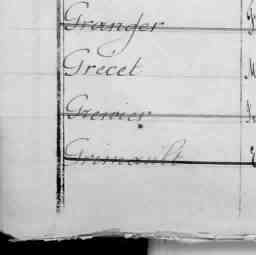 Granger
Grecet
Grenier
Grimault